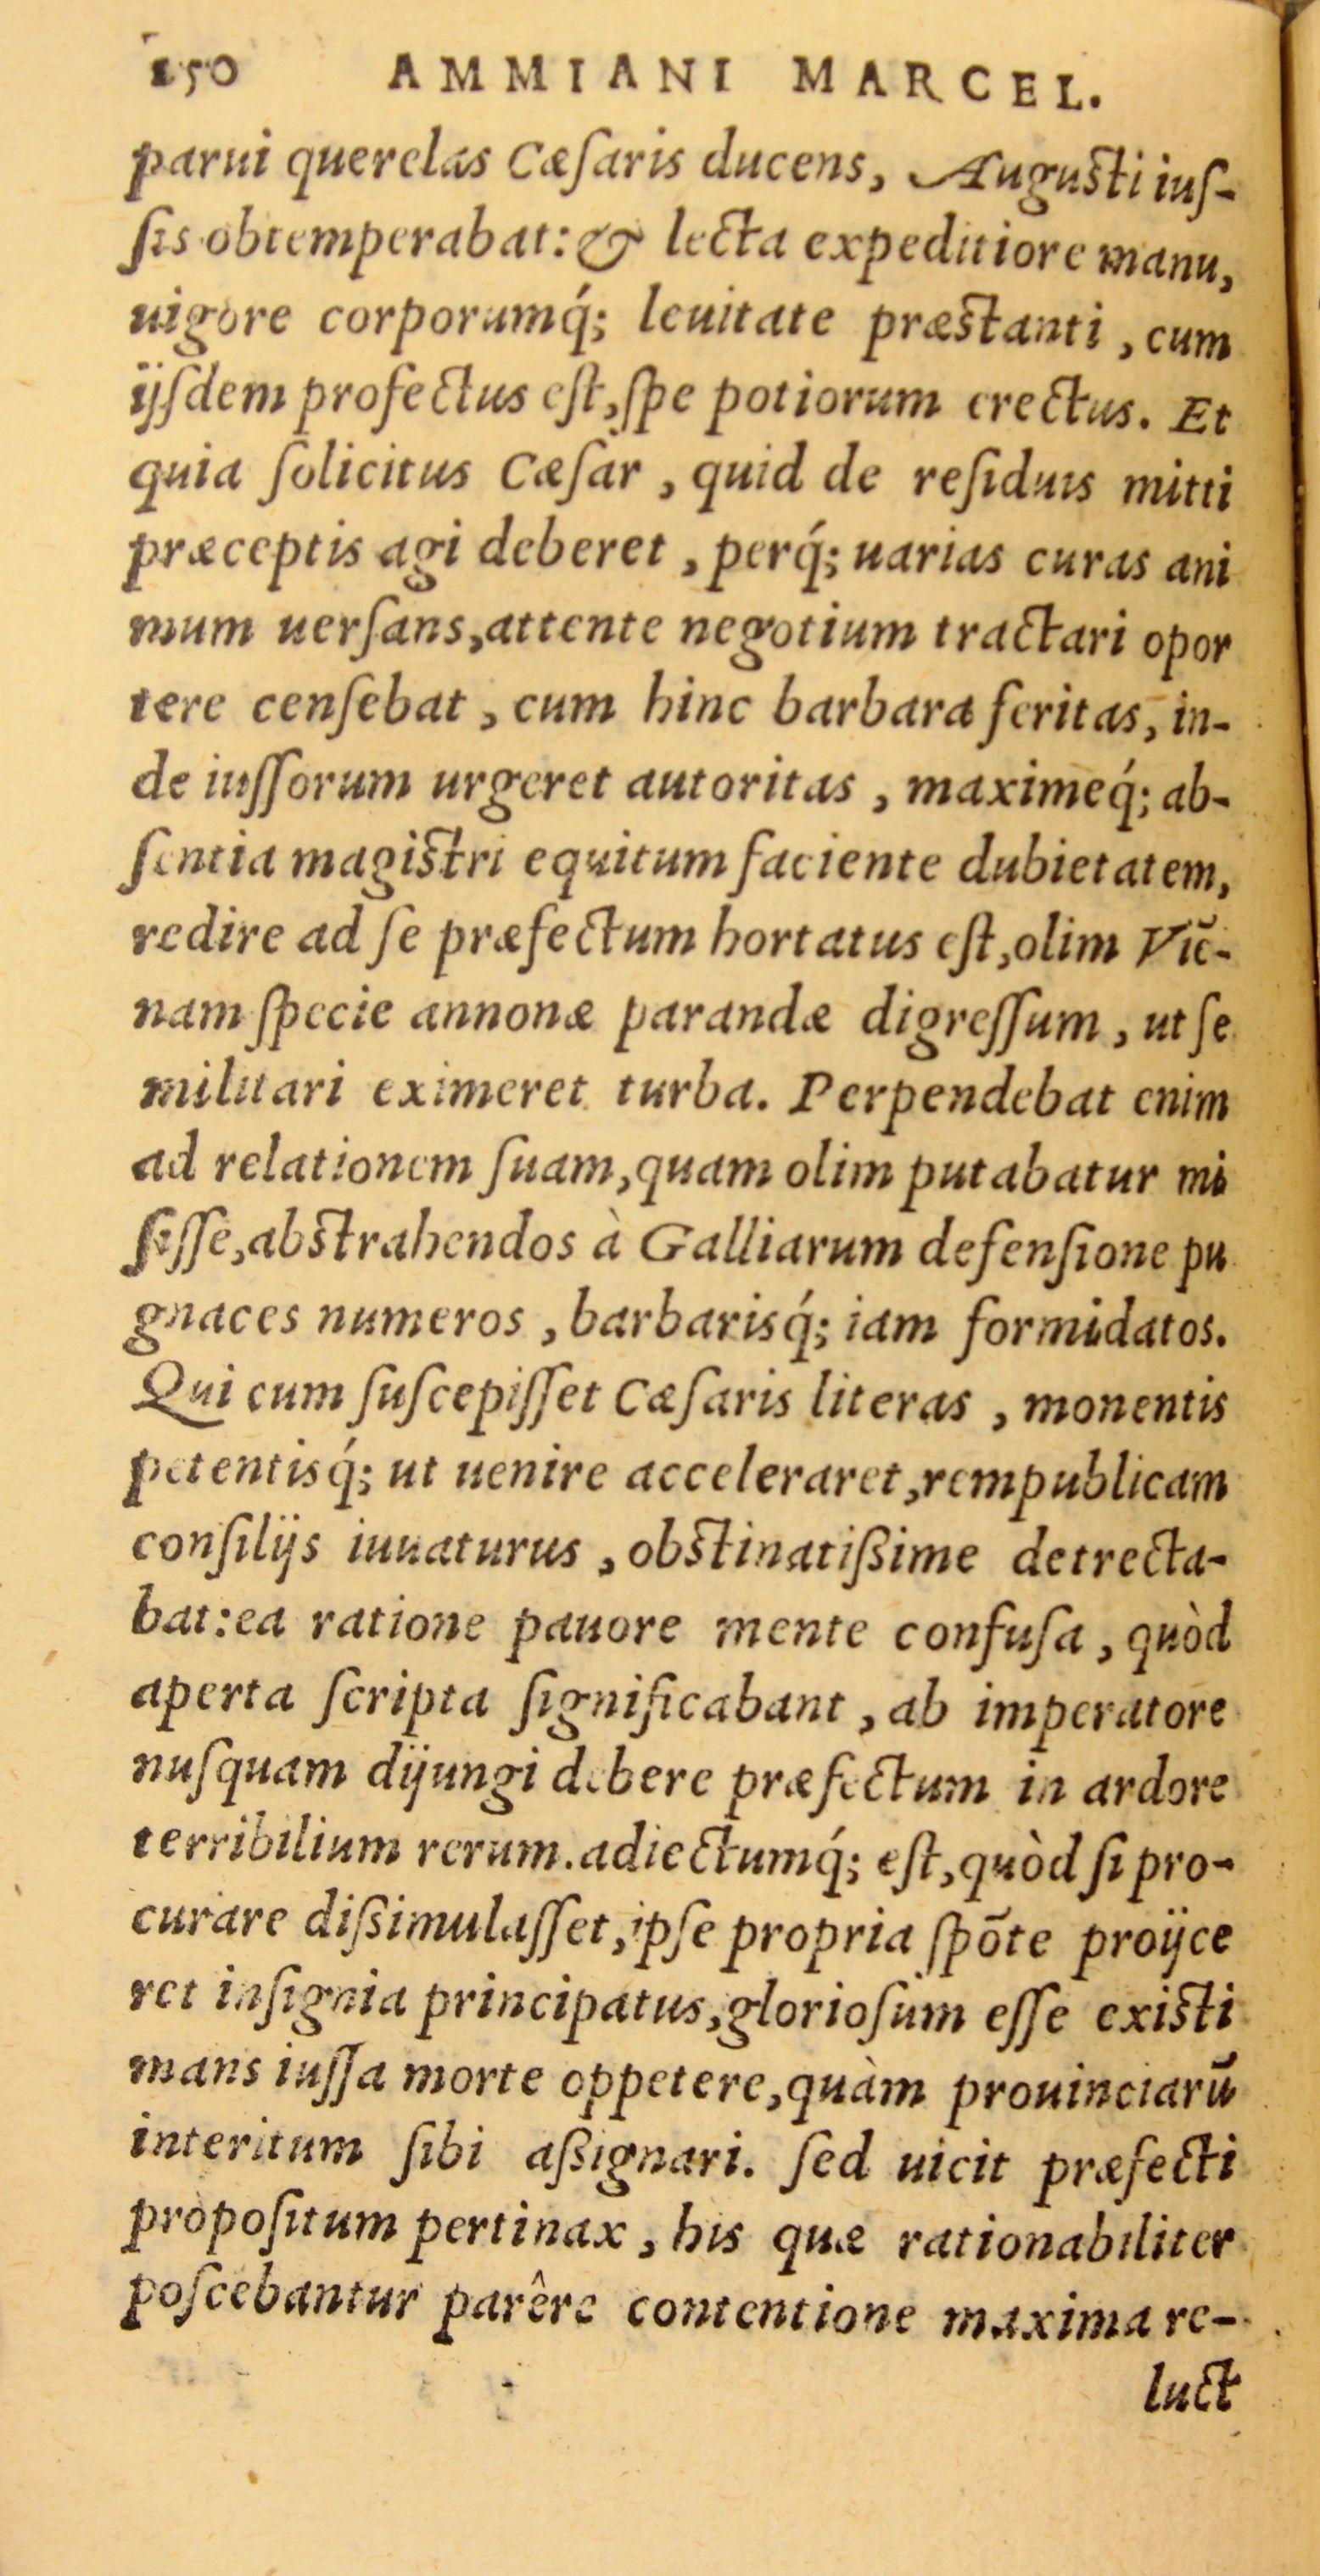 150 AMMIANI MARCEL.
parui querelas Cæſaris ducens, Auguſti iuſ-
ſis obtemperabat: & lecta expeditiore manu,
uigore corporumq́; leuitate præſtanti, cum
ijſdem profectus eſt, ſpe potiorum erectus. Et
quia ſolicitus Cæſar, quid de reſiduis mitti
præceptis agi deberet, perq́; uarias curas ani
mum uerſans, attente negotium tractari opor
tere cenſebat, cum hinc barbara feritas, in-
de iuſſorum urgeret autoritas, maximeq́; ab-
ſentia magiſtri equitum faciente dubietatem,
redire ad ſe præfectum hortatus eſt, olim Viē-
nam ſpecie annonæ parandæ digreſſum, ut ſe
militari eximeret turba. Perpendebat enim
ad relationem ſuam, quam olim putabatur mi
ſiſſe, abſtrahendos à Galliarum defenſione pu
gnaces numeros, barbarisq́; iam formidatos.
Qui cum ſuſcepiſſet Cæſaris literas, monentis
petentisq́; ut uenire acceleraret, rempublicam
conſilijs iuuaturus, obſtinatißime detrecta-
bat: ea ratione pauore mente confuſa, quòd
aperta ſcripta ſignificabant, ab imperatore
nuſquam dijungi debere præfectum in ardore
terribilium rerum. adiectumq́; eſt, quòd ſi pro-
curare dißimulaſſet, ipſe propria ſpōte proijce
ret inſignia principatus, glorioſum eſſe exiſti
mans iuſſa morte oppetere, quàm prouinciarū
interitum ſibi aßignari. ſed uicit præfecti
propoſitum pertinax, his quæ rationabiliter
poſcebantur parêre contentione maxima re-
luct